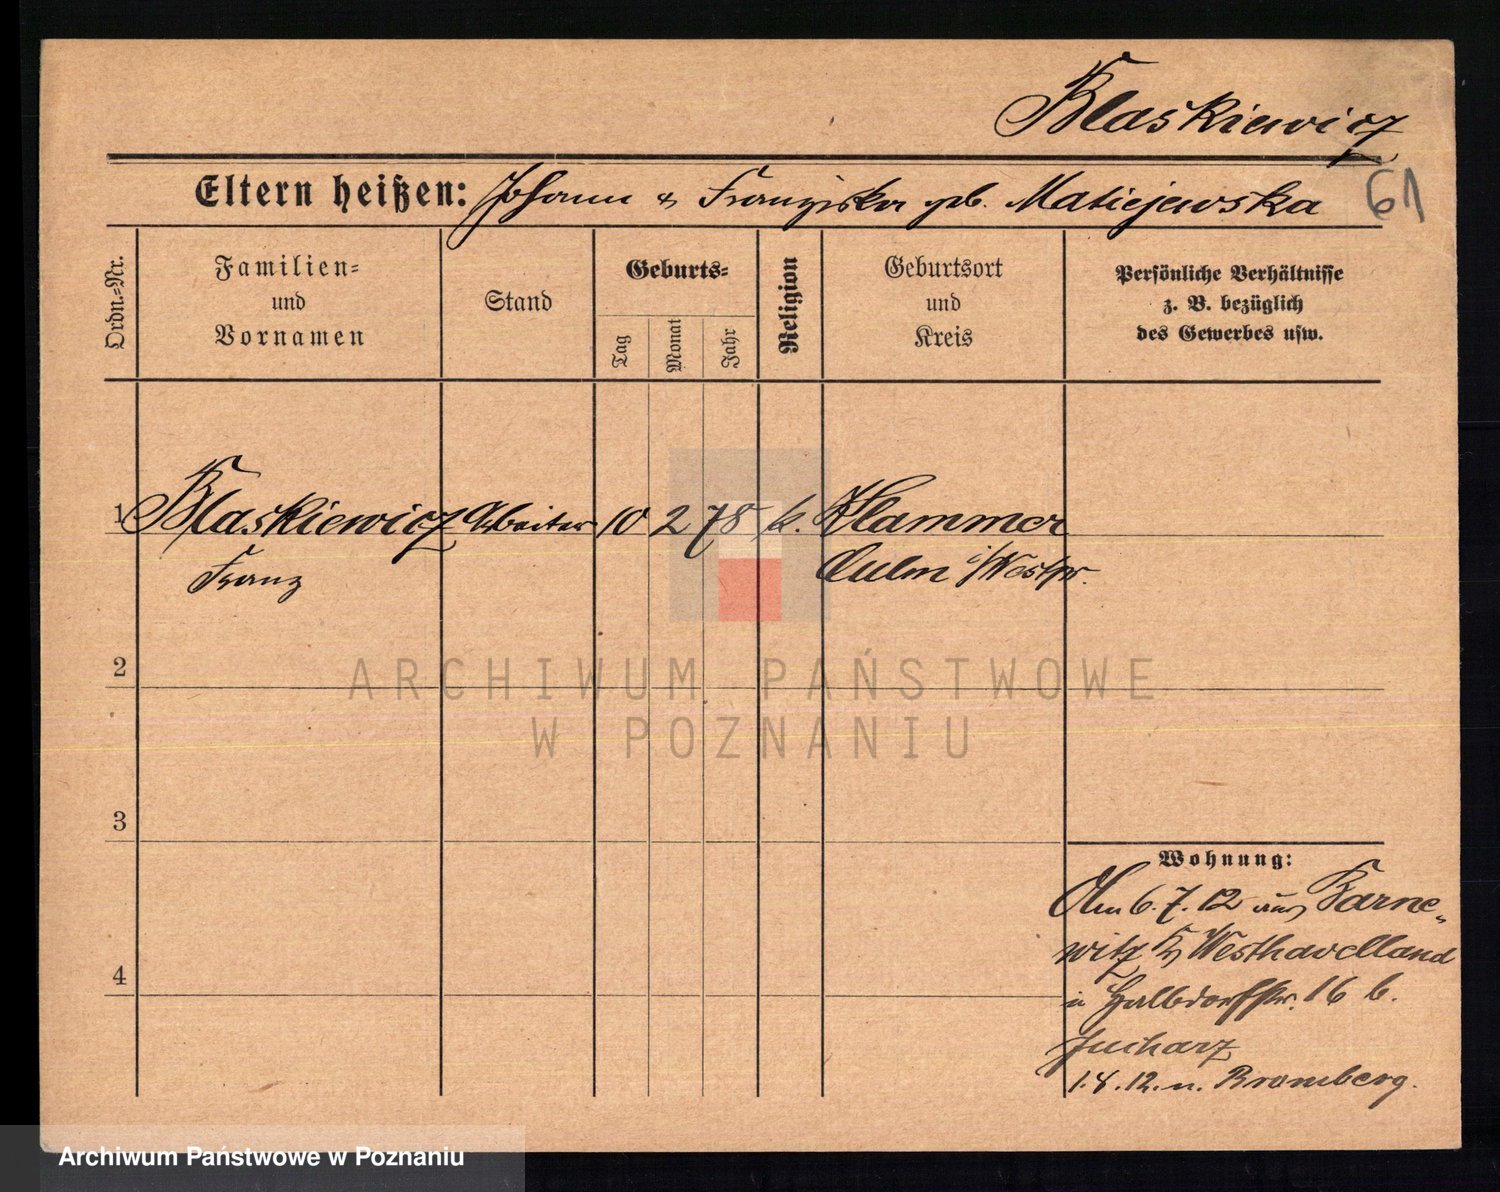 Blaskiewicz
Eltern heißen: Johann & Franziska geb. Matiejewska
61
Ordn.=Nr.
Familien=
und
Vornamen
Stand
Geburts=
Tag
Monat
Jahr
Religion
Geburtsort
und
Kreis
Persönliche Verhältnisse
z. B. bezüglich
des Gewerbes usw.
1 Blaskiewicz Arbeiter 10 2 78 k. Klammer
Franz
Culm i/Westpr.
2
ARCHIWUM PAŃSTWOWE
W POZNANIU
3
Wohnung:
Am 6.7.12 aus Karne-
witz Kr Westhavelland
in Halbdorfstr. 16 b.
Jucharz
1.8.12. n. Bromberg.
4
Archiwum Państwowe w Poznaniu